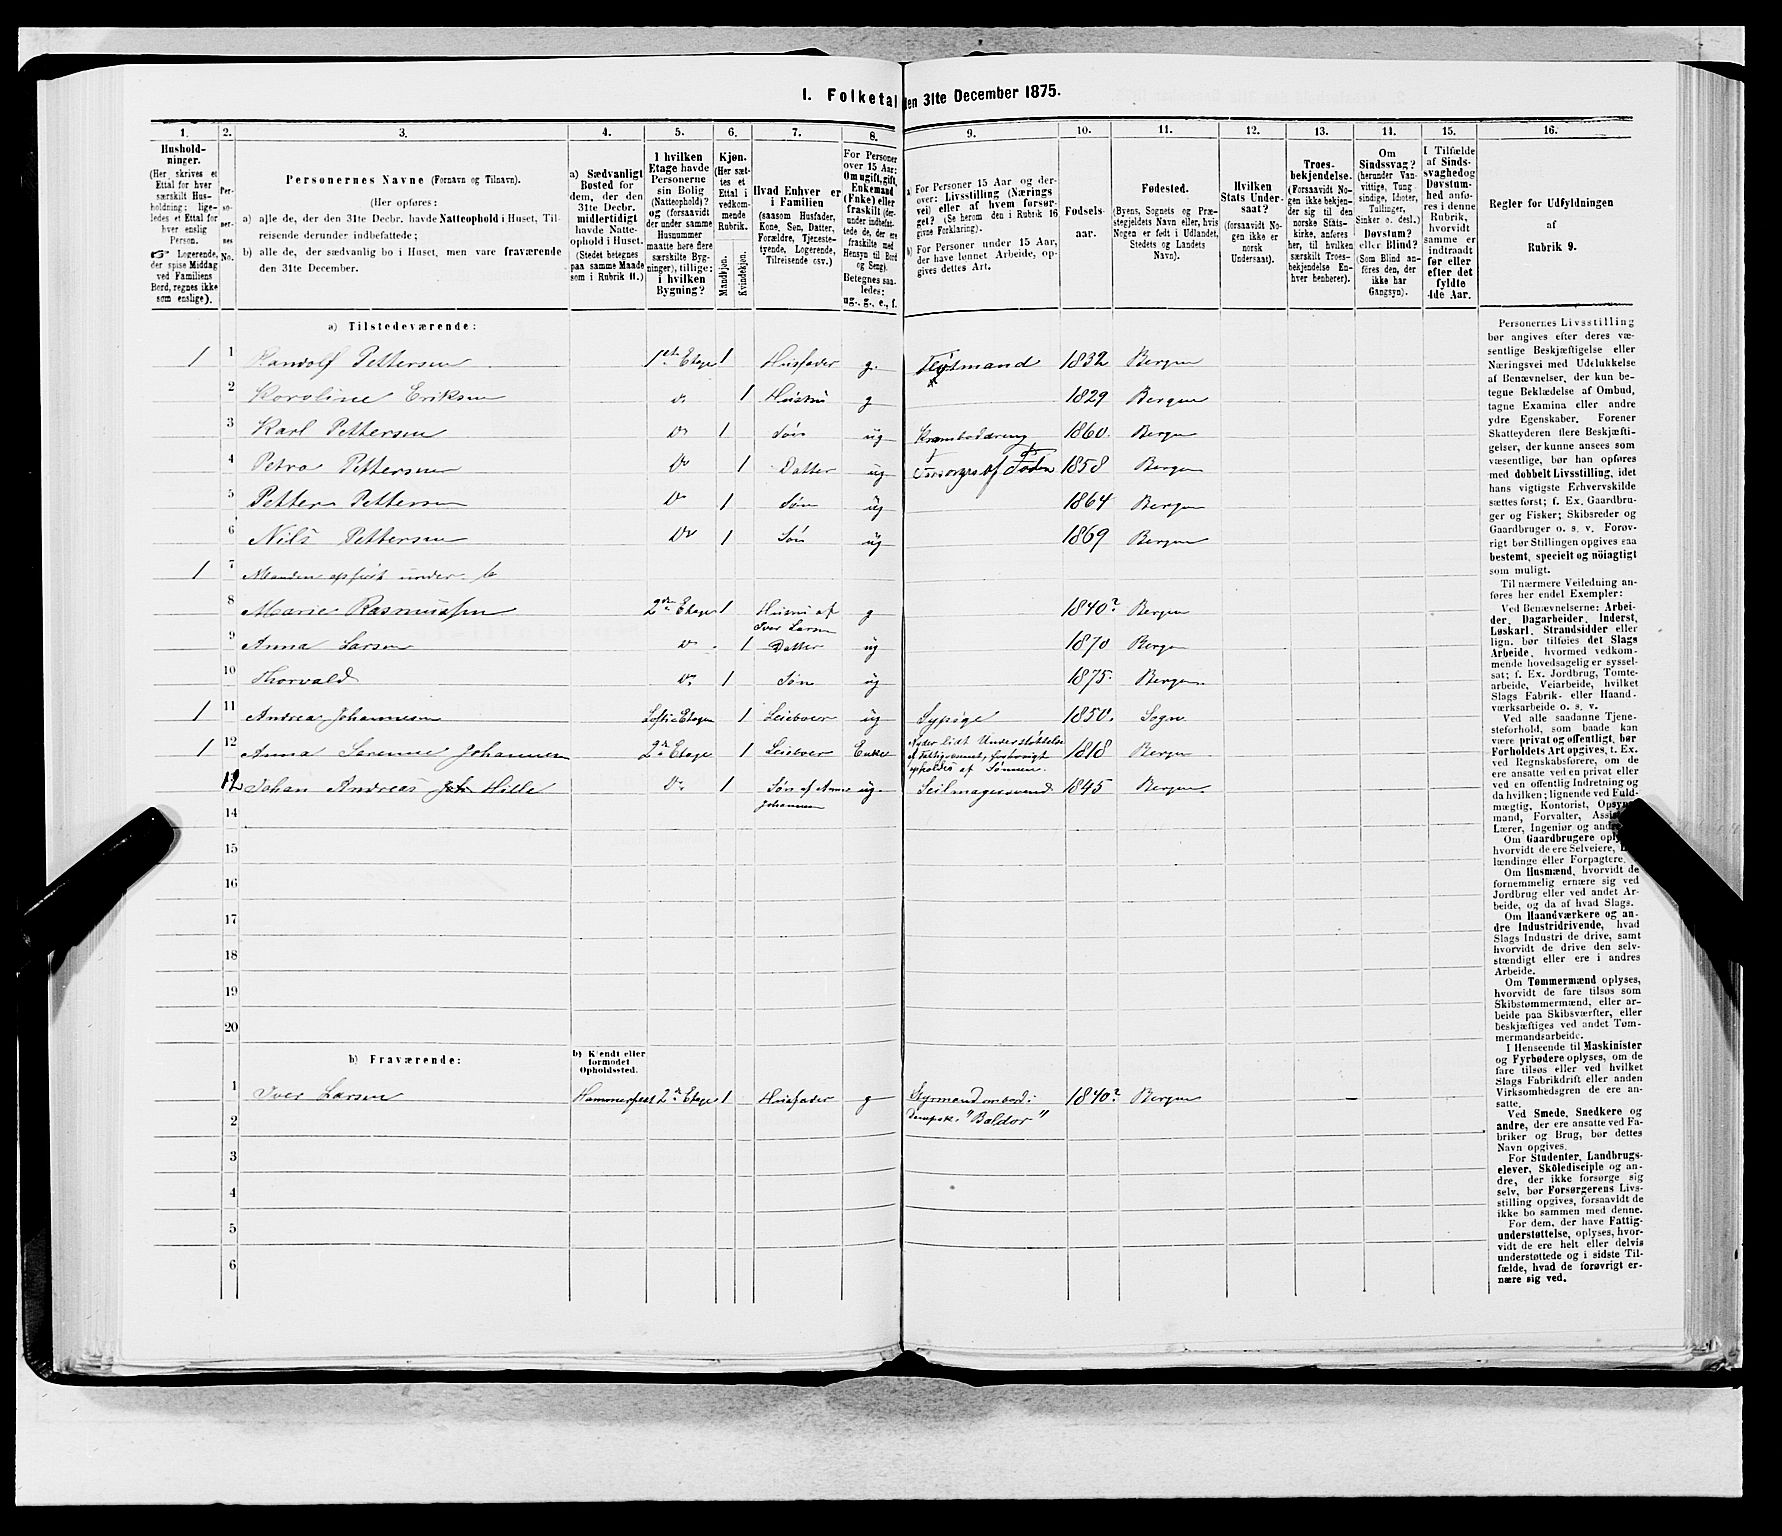 1. Folketal den 31te December 1875.
1. 2. 3. 4. 5. 6. 7. 8. 9. 10. 11. 12. 13. 14. 15. 16.
Hushold-
ninger.
(Her skrives et
Ettal for hver
særskilt Hus-
holdning; lige-
ledes et Ettal for
hver enslig
Person.
☞ Logerende,
der spise Middag
ved Familiens
Bord, regnes ikke
som enslige).
Per-
so-
ner-
nes
No.
Personernes Navne (Fornavn og Tilnavn).
(Her opføres:
a) alle de, der den 31te Decbr. havde Natteophold i Huset, Til-
reisende derunder indbefattede;
b) alle de, der sædvanlig bo i Huset, men vare fraværende
den 31te December.
a) Sædvanligt
Bosted for
dem, der den
31te Decbr.
midlertidigt
havde Natte-
ophold i Huset.
(Stedet betegnes
paa samme Maade
som i Rubrik 11.)
I hvilken
Etage havde
Personerne
sin Bolig
(Natteophold)?
og (forsaavidt
der under samme
Husnummer
maatte høre flere
særskilte Byg-
ninger), tillige:
i hvilken
Bygning?
Kjøn.
(Her sæt-
tes et
Ettal i
vedkom-
mende
Rubrik.
Mandkjøn.
Kvindekjøn.
Hvad Enhver er
i Familien
(saasom Husfader,
Kone, Søn, Datter,
Forældre, Tjeneste-
tyende, Logerende,
Tilreisende osv.)
For Personer
over 15 Aar:
Om ugift, gift,
Enkemand
(Enke) eller
fraskilt (der-
under indbefat-
tede de, der ere
fraskilte med
Hensyn til Bord
og Seng).
Betegnes saa-
ledes:
ug., g., e., f.
a) For Personer 15 Aar og der-
over: Livsstilling (Nærings
vei) eller af hvem forsør-
get? (Se herom den i Rubrik 16
givne Forklaring).
b) For Personer under 15 Aar,
der have lønnet Arbeide, op-
gives dettes Art.
Fødsels-
aar.
Fødested.
(Byens, Sognets og Præ-
stegjeldets Navn eller, hvis
Nogen er født i Udlandet,
Stedets og Landets
Navn).
Hvilken
Stats Under-
saat?
(forsaavidt No-
gen ikke er
norsk
Undersaat).
Troes-
bekjendelse.
(Forsaavidt No-
gen ikke bekjen-
der sig til den
norske Stats-
kirke, anføres
her, til hvilken
særskilt Troes-
bekjendelse En-
hver henhører).
Om
Sindssvag?
(herunder Van-
vittige, Tung
sindige, Idioter,
Tullinger,
Sinker o. desl.)
Døvstum?
eller Blind?
(Som Blind an-
føres den, der
ikke har
Gangsyn).
I Tilfælde
af Sinds-
svaghed og
Døvstum-
hed anfø-
res i denne
Rubrik,
hvorvidt
samme er
indtraadt
før eller
efter det
fyldte
4de Aar.
Regler for Udfyldningen
af
Rubrik 9.
a) Tilstedeværende:
1 1 Randolf Pettersen 1st Etage 1 Husfader g. Fløtmand 1832 Bergen
2 Karoline Eriksen do 1 Hustru g 1829 Bergen
3 Karl Pettersen do 1 Søn ug Kramboddreng 1860. Bergen
4 Petra Pettersen Do 1 Datter ug Forsørges af Faderen 1858 Bergen
5 Petter Pettersen Do 1 Søn ug 1864 Bergen
6 Nils Pettersen Do 1 Søn ug 1869 Bergen
1 7 Manden opført under b
8 Marie Rasmussen 2den Etage 1 Hustru af g 1840? Bergen
Iver Larsen
9 Anna Larsen do 1 Datter ug 1870 Bergen
10 Thorvald do 1 Søn ug 1875. Bergen
1 11 Andrea Johannesen Loftsetagen 1 Leieboer ug Sypige 1850. Sogn
1 12 Anna Serenne Johannesen 2den Etage 1 Leieboer Enke Nyder lidt Understøttelse 1818 Bergen
af Fattigvæsenet, forøvrigt
opholdes af Sønnen.
12 Johan Andreas Hille Do 1 Søn af Anna ug Seilmagersvend 1845 Bergen
Johannesen
14
15
16
17
18
19
20
b) Fraværende:
b) Kjendt eller
formodet
Opholdssted.
1 Iver Larsen Hammerfest 2den Etage 1 Husfader g Styrmand ombord i 1840? Bergen
2 Dampsk. "Baldor"
3
4
5
6
Personernes Livsstilling
bør angives efter deres væ-
sentlige Beskjæftigelse eller
Næringsvei med Udelukkelse
af Benævnelser, der kun be-
tegne Beklædelse af Ombud,
tagne Examina eller andre
ydre Egenskaber. Forener
Skatteyderen flere Beskjæfti-
gelser, der kunne ansees som
væsentlige, bør han opføres
med dobbelt Livsstilling, idet
hans vigtigste Erhvervskilde
sættes først; f. Ex. Gaardbru-
ger og Fisker; Skibsreder og
Gaardbruger o. s. v. Forøv-
rigt bør Stillingen opgives saa
bestemt, specielt og nöiagtigt
som muligt.
Til nærmere Veiledning an-
føres her endel Exempler:
Ved Benævnelserne: Arbei-
der, Dagarbeider, Inderst,
Løskarl, Strandsidder eller
lign. bør tilføies det Slags
Arbeide, hvormed vedkom-
mende hovedsagelig er syssel-
sat; f. Ex. Jordbrug, Tomte-
arbeide, Veiarbeide, hvilket
Slags Fabrik- eller Haand-
værksarbeide o. s. v.
Ved alle saadanne Tjene-
steforhold, som baade kan
være privat og offentligt, bør
Forholdets Art opgives, t. Ex.
ved Regnskabsførere, om de
ere ansatte ved en privat eller
ved en offentlig Indretning og
da hvilken; lignende ved Fuld-
mægtig, Kontorist, Opsyns-
mand, Forvalter, Assi
Lærer, Ingeniør og and
Om Gaardbrugere oply
hvorvidt de ere Selveiere,
lændinge eller Forpagtere.
Om Husmænd, hvorvidt de
fornemmelig ernære sig ved
Jordbrug eller ved andet Ar-
beide, og da af hvad Slags.
Om Haandværkere og an-
dre Industridrivende, hvad
Slags Industri de drive, samt
hvorvidt de drive den selv-
stændigt eller ere i andres
Arbeide.
Om Tømmermænd oplyses,
hvorvidt de fare tilsøs som
Skibstømmermænd, eller ar-
beide paa Skibsværfter, eller
beskjæftiges ved andet Tøm-
mermandsarbeide.
I Henseende til Maskinister
og Fyrbødere oplyses, om de
fare tilsøs eller ved hvilket
Slags Fabrikdrift eller anden
Virksomhedsgren de ere an-
satte.
Ved Smede, Snedkere og
andre, der ere ansatte ved Fa-
briker og Brug, bør dettes
Navn opgives.
For Studenter, Landbrugs-
elever, Skoledisciple og an-
dre, der ikke forsørge sig
selv, bør Forsørgerens Livs-
stilling opgives, forsaavidt de
ikke bo sammen med denne.
For dem, der have Fattig-
understøttelse, oplyses, hvor-
vidt de ere helt eller delvis
understøttede og i sidste Til-
fælde, hvad de forøvrigt er-
nære sig ved.